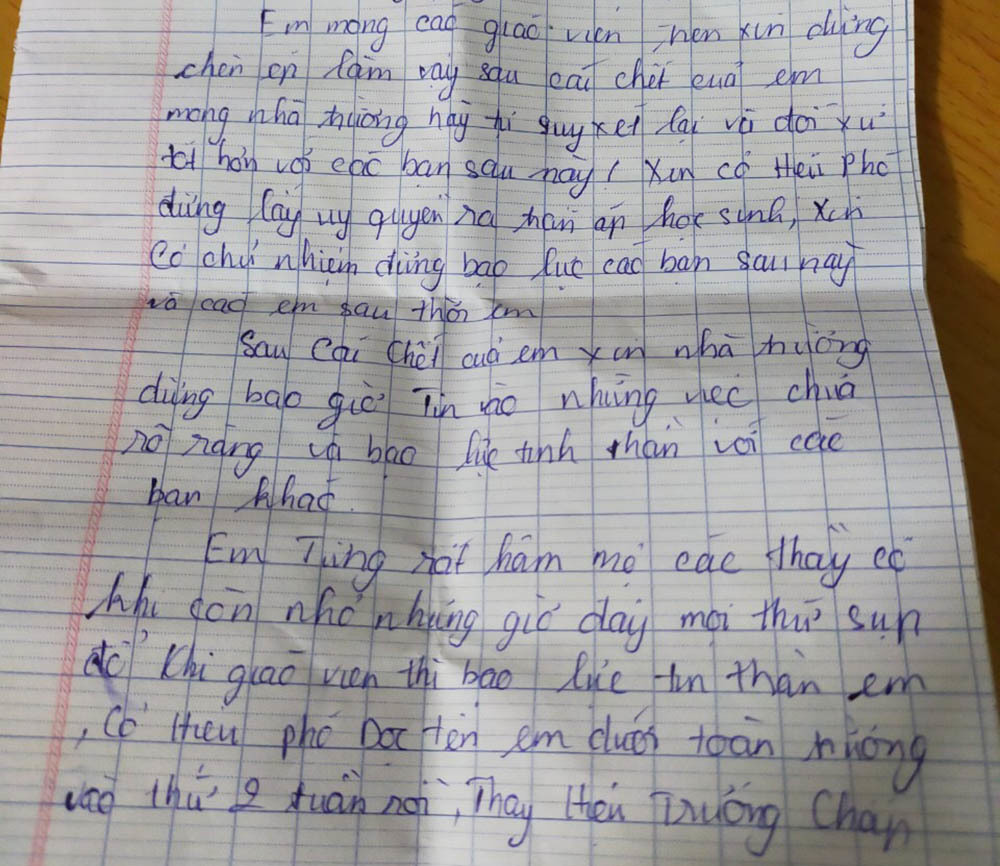 Em mong các giáo viên nên xin đừng
chèn ép làm vậy sau cái chết của em
mong nhà trường hãy tự quy xét lại và đối xử
tốt hơn với các bạn sau này! Xin cô Hiệu Phó
đừng lấy uy quyền ra trấn áp học sinh, Xin
Cô chủ nhiệm đừng bạo lực các bạn sau này
và các em sau thời em
Sau Cái Chết của em xin nhà trường
đừng bao giờ Tin vào những việc chưa
rõ ràng và bạo lực tinh thần với các
bạn khác.
Em Từng rất hâm mộ các thầy cô
khi còn nhỏ nhưng giờ đây mọi thứ sụp
đổ Khi giáo viên thì bạo lực tin thần em
, Cô Hiệu phó Đọc tên em dưới toàn trường
vào thứ 2 tuần rồi, Thầy Hiệu Trưởng Chấp